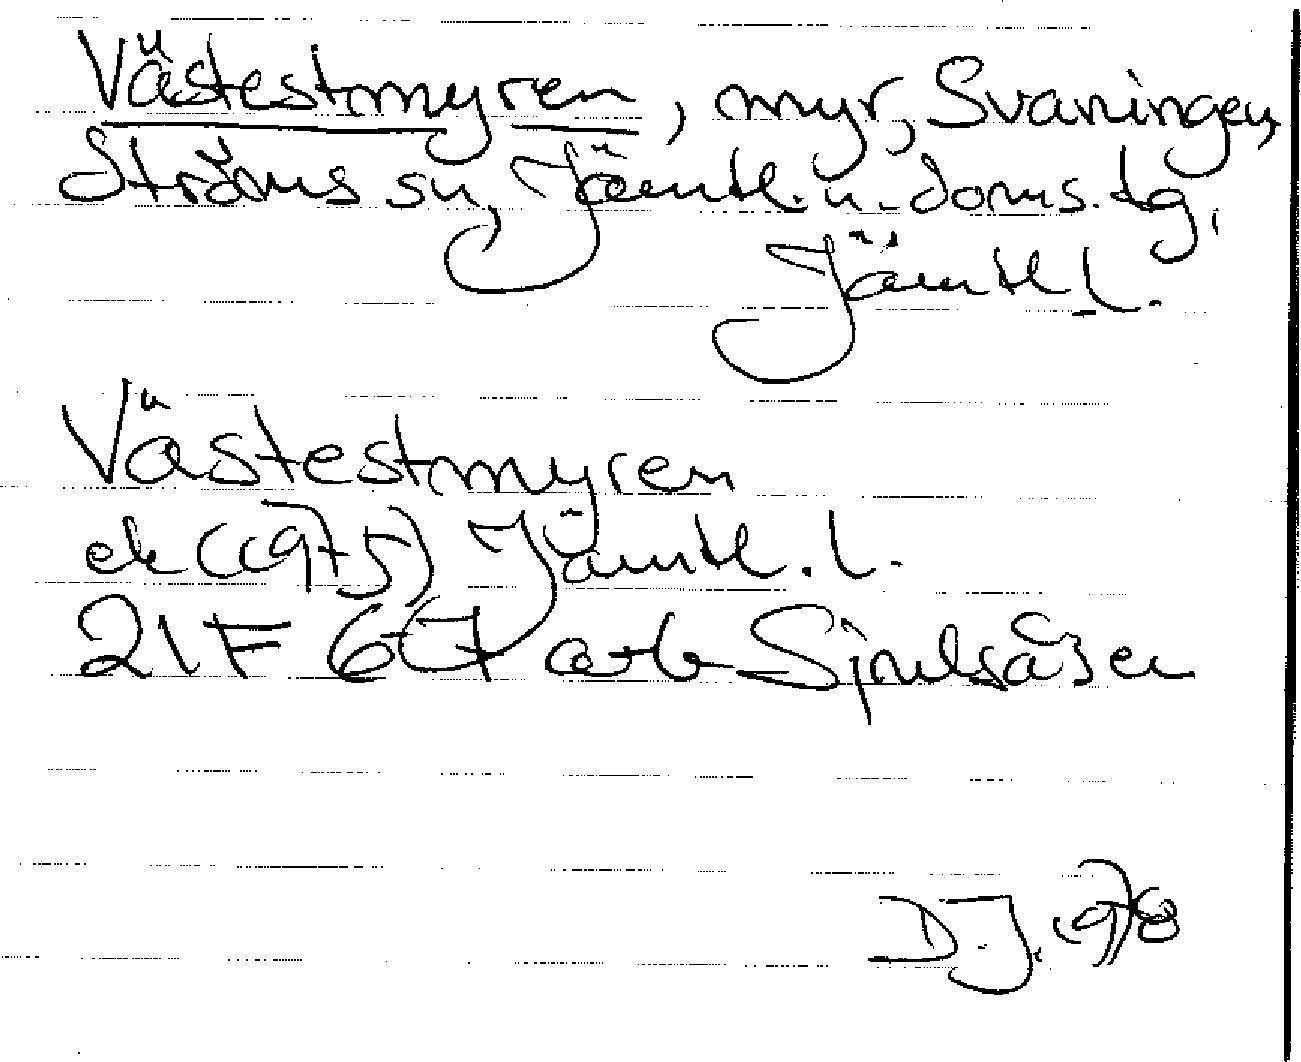 Västestmyren, myr, Svaningen,
Ströms sn, Jämtl. n. doms. tg,
Jämtl l.
Västestmyren
ek (1975) Jämtl. l.
21F 6-7 a-b Sjulsåsen
D.J. 1978